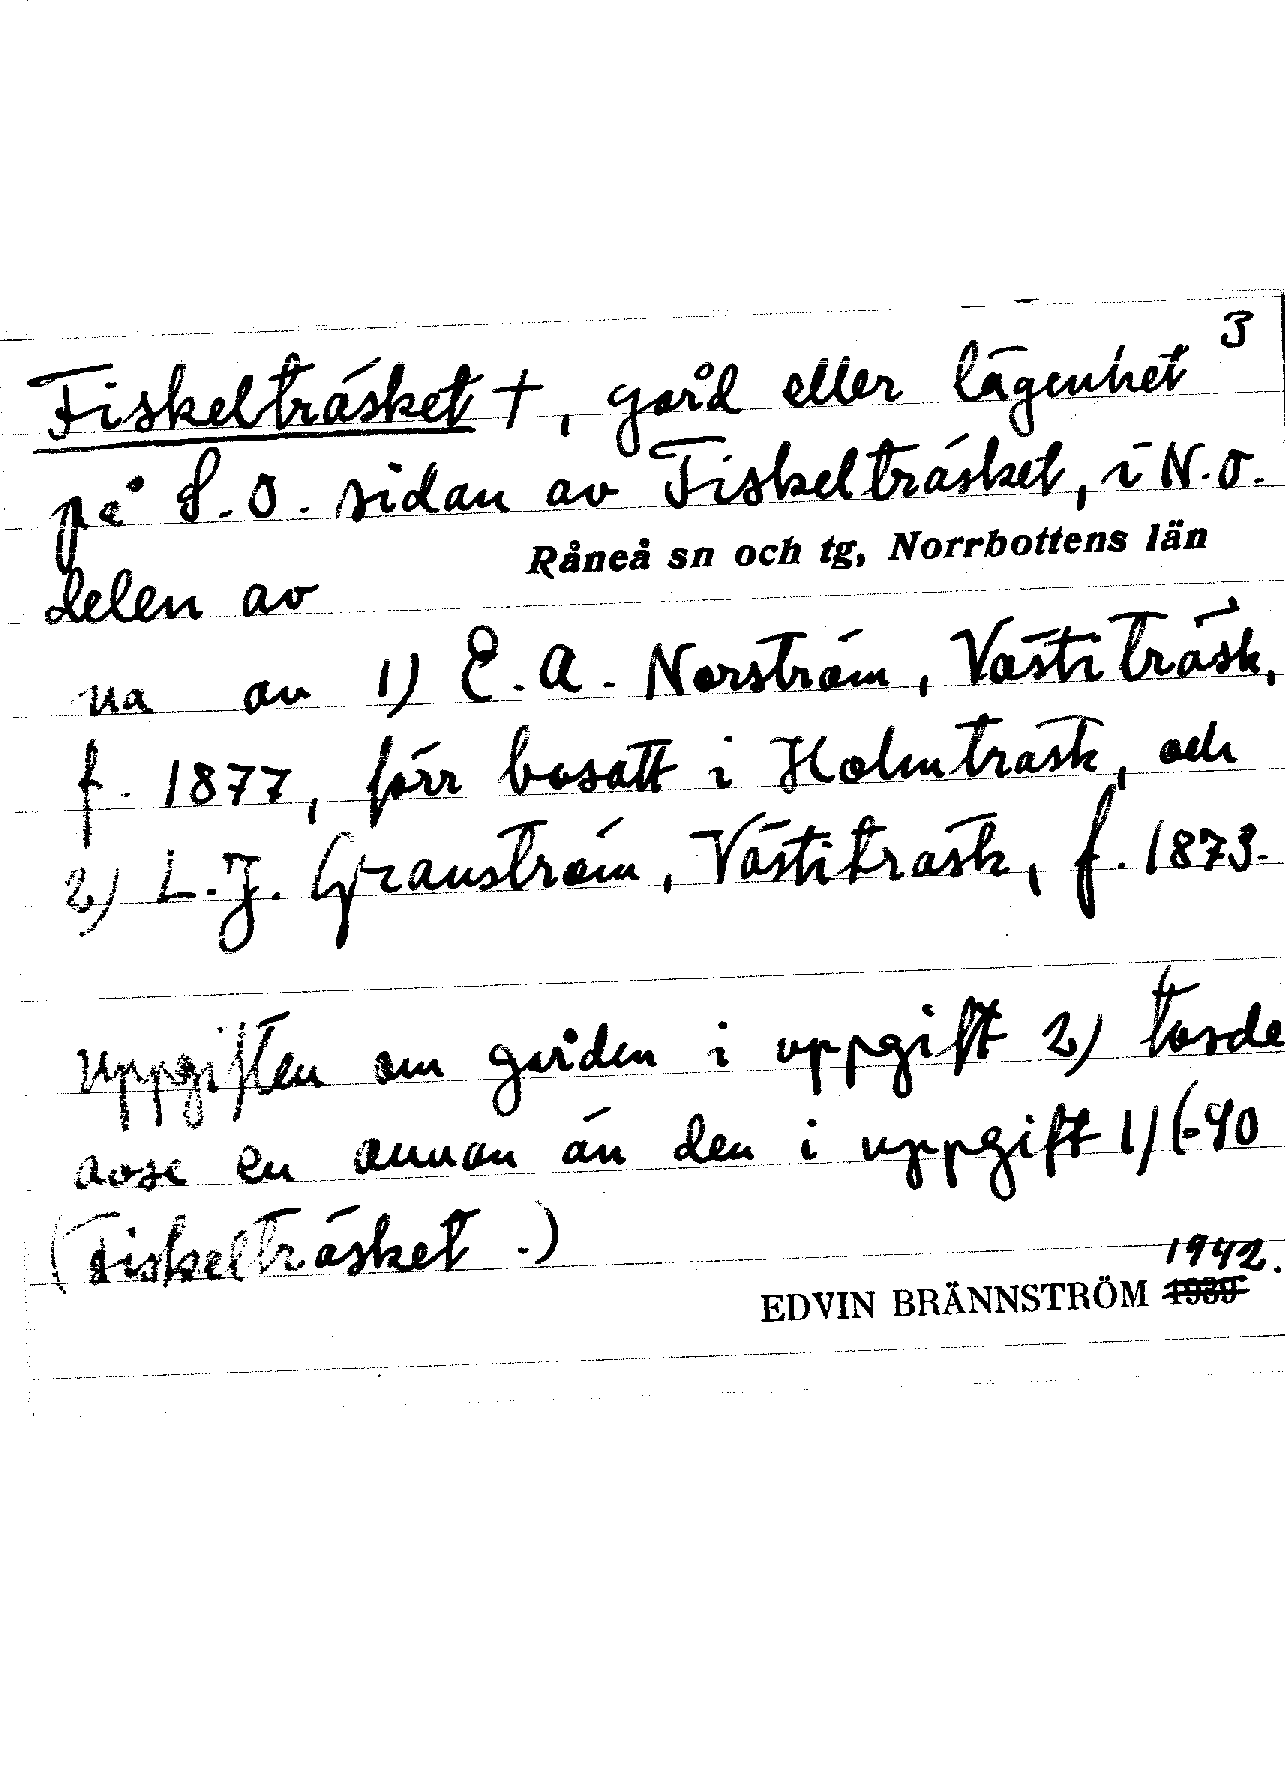 3
Fiskelträsket +, gård eller lägenhet
på S.O. sidan av Fiskelträsket, i N.O.
Råneå sn och tg, Norrbottens län
delen av
na av 1) E.A. Norström, Västiträsk,
f. 1877, förr bosatt i Holmträsk, och
2) L.J. Granström, Västiträsk, f. 1873.
Uppgiften om gården i uppgift 2) torde
avse en annan än den i uppgift 1) (-40
(Fiskelträsket.)
1942.
EDVIN BRÄNNSTRÖM 1939